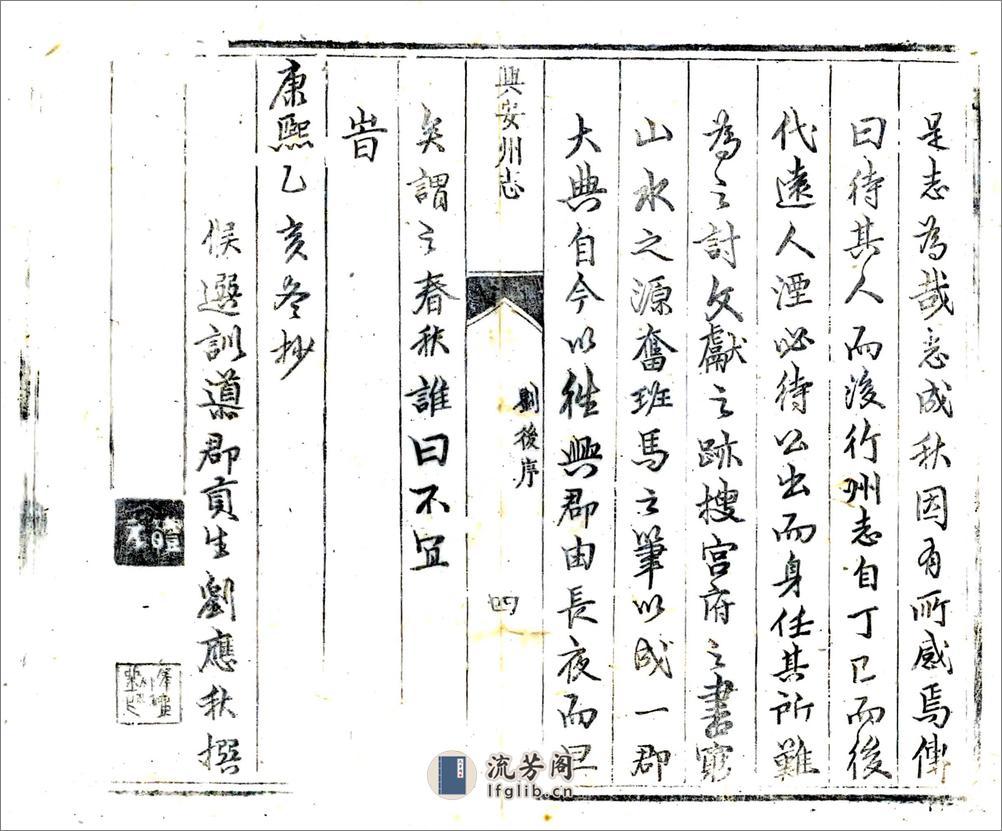 是志為哉志成秋因有所感焉傳
曰待其人而後行州志自丁巳而後
代遠人湮必待公出而身任其所難
為之討文獻之跡搜宮府之書窮
山水之源奮班馬之筆以成一郡
大典自今以徃興郡由長夜而旦
興安州志
劉後序
四
矣謂之春秋誰曰不宜
旹
康熙乙亥冬抄
候選訓導郡貢生劉應秋撰
流芳阁
lfglib.cn